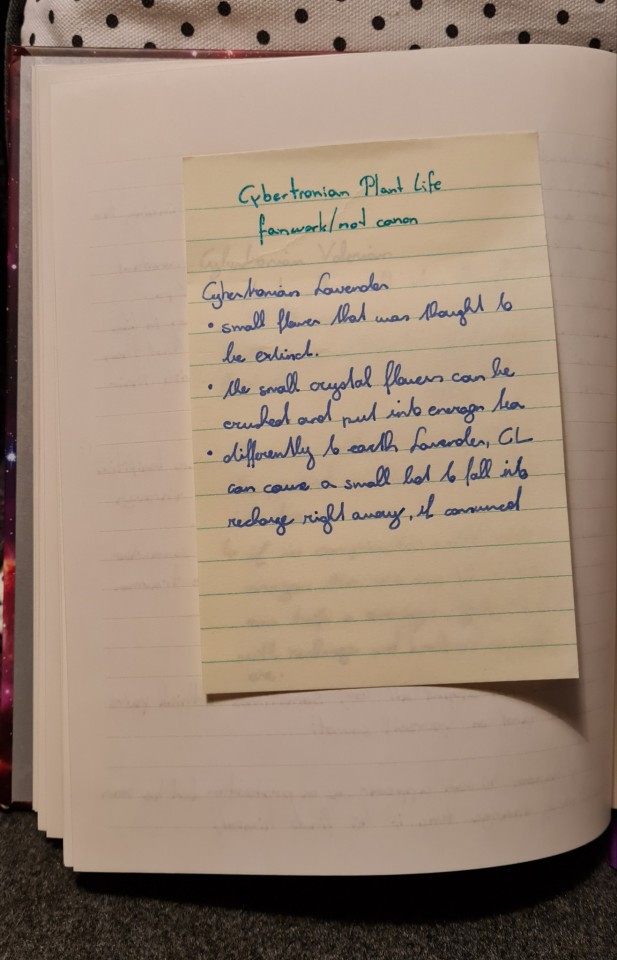 Cybertronian Plant Life
fanwork/not canon
Cybertronian Lavender
• small flower that was thought to
be extinct.
• the small crystal flowers can be
crushed and put into energon tea
• differently to earth Lavender, CL
can cause a small bot to fall into
recharge right away, if consumed